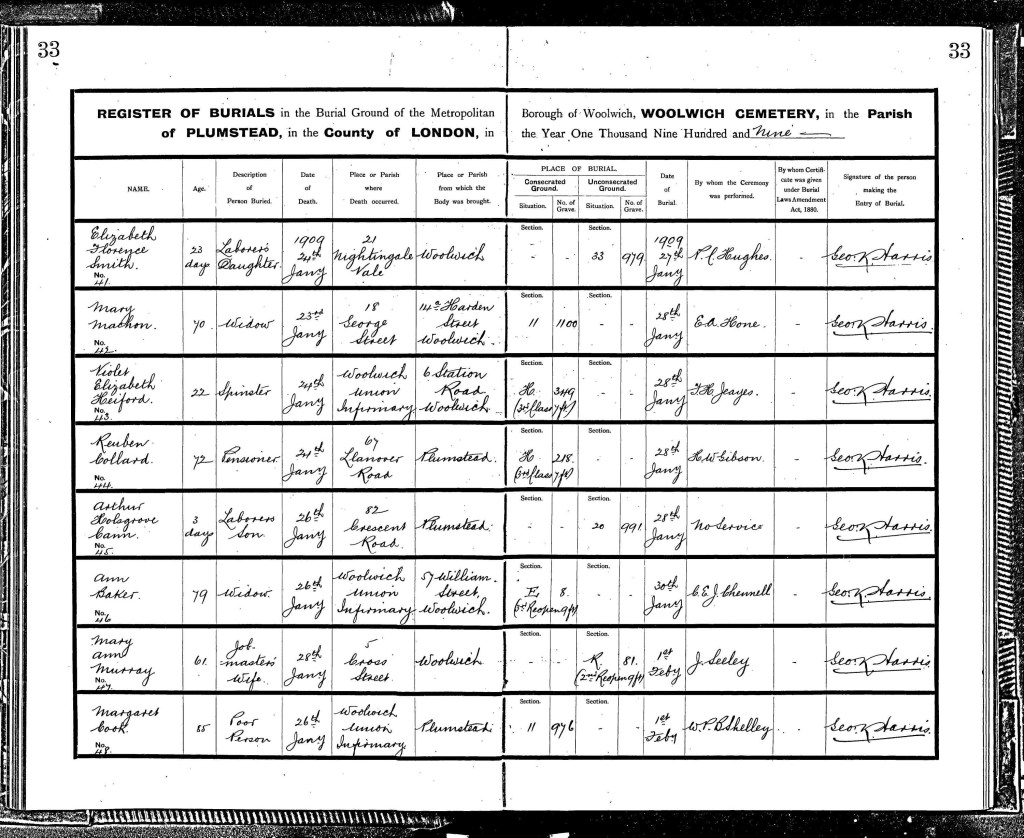 33
33
REGISTER OF BURIALS in the Burial Ground of the Metropolitan Borough of Woolwich, WOOLWICH CEMETERY, in the Parish
of PLUMSTEAD, in the County of LONDON, in the Year One Thousand Nine Hundred and Nine
NAME.
Age.
Description of Person Buried.
Date of Death.
Place or Parish where Death occurred.
Place or Parish from which the Body was brought.
PLACE OF BURIAL.
Consecrated Ground.
Unconsecrated Ground.
Situation.
No. of Grave.
Situation.
No. of Grave.
Date of Burial.
By whom the Ceremony was performed.
By whom Certificate was given under Burial Laws Amendment Act, 1880.
Signature of the person making the Entry of Burial.
Elizabeth Florence Smith. No. 41. 23 days Laborer's Daughter. 1909 24th Jany 21 Nightingale Vale Woolwich Section. - - Section. 33 979. 1909 27th Jany P. C. Hughes. - Geo. K. Harris
Mary Machon. No. 42. 70 Widow 23rd Jany 18 George Street 14a Harden Street Woolwich. Section. 11 1100 Section. - - 28th Jany E. A. Hone. - Geo. K. Harris.
Violet Elizabeth Heiford. No. 43. 22 Spinster 24th Jany Woolwich Union Infirmary 6 Station Road Woolwich Section. H. 349 (3rd Class 7ft) Section. - - 28th Jany F. H. Jeayes. - Geo. K. Harris.
Reuben Collard. No. 44. 72 Pensioner. 24th Jany 67 Llanover Road Plumstead. Section. H 218. (3rd Class 7ft) Section. - - 28th Jany H. W Gibson. - Geo. K. Harris.
Arthur Holsgrove Cann. No. 45. 3 days Laborers Son. 26th Jany 82 Crescent Road. Plumstead. Section. - - Section. 20 991. 28th Jany No Service - Geo. K. Harris.
Ann Baker. No. 46 79 Widow. 26th Jany Woolwich Union Infirmary 57 William. Street. Woolwich. Section. E. 8. Reopen 9ft) Section. - - 30th Jany C. E. J. Chennell - Geo. K. Harris.
Mary Ann Murray No. 47. 61. Job. master's Wife. 28th Jany 5 Cross Street. Woolwich Section. - - Section. R. 81. (2nd Reopen 9ft) 1st Feby J. Seeley - Geo. K. Harris.
Margaret Cook. No. 48. 85 Poor Person 26th Jany Woolwich Union Infirmary Plumstead Section. 11 976 Section. - - 1st Feby W. P. B Shelley. - Geo. K. Harris.